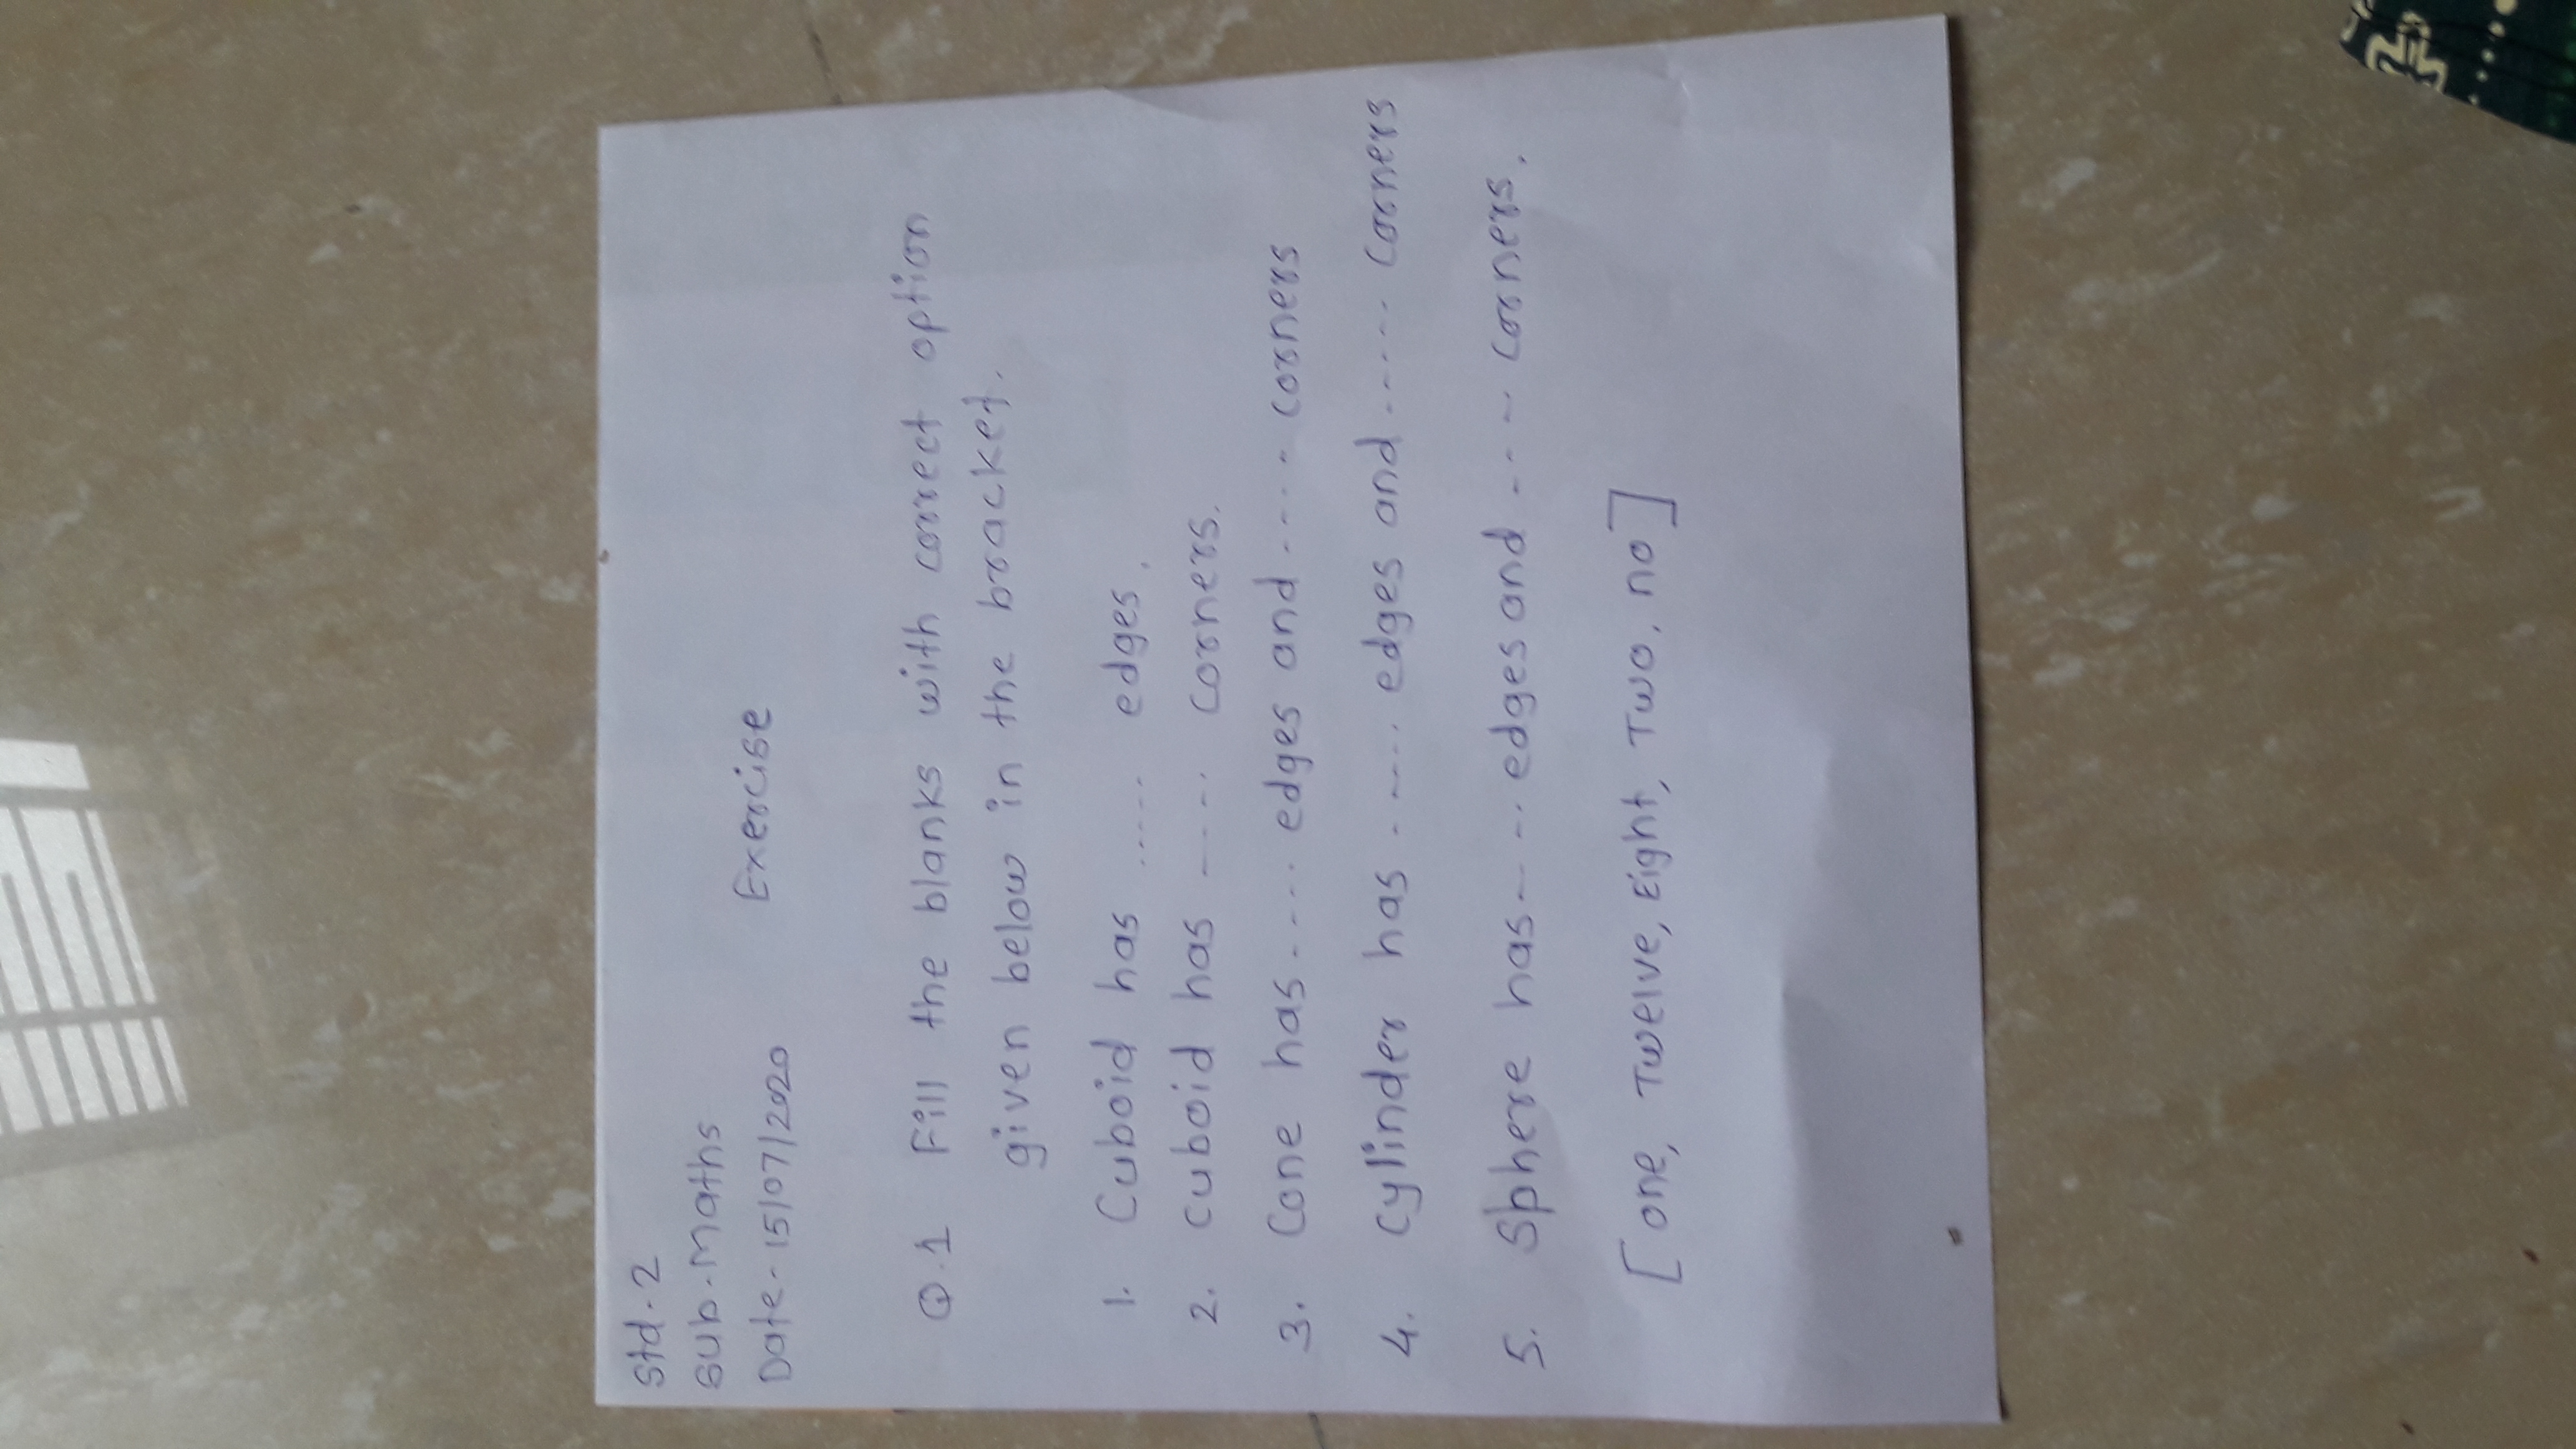 Std. 2
Sub. Maths
Date. 15/07/2020
Exercise
Q.1 Fill the blanks with correct option
given below in the bracket.
1. Cuboid has ..... edges.
2. Cuboid has ----. corners.
3. Cone has ----. edges and ----- corners
4. Cylinder has -----. edges and ------ corners
5. Sphere has ----- edges and ---- corners.
[one, Twelve, Eight, Two, no]